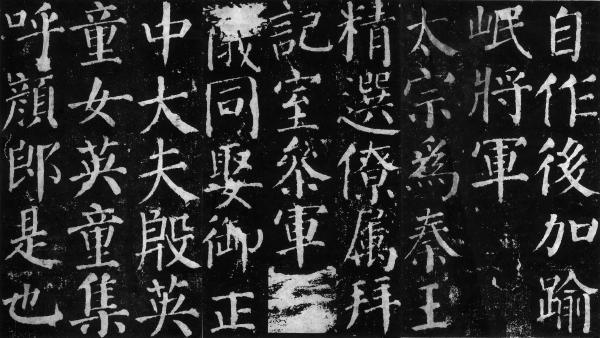 自作後加踰
岷將軍
太宗為秦王
精選僚属拜
記室叅軍
儀同娶御正
中大夫殷英
童女英童集
呼顔郎是也